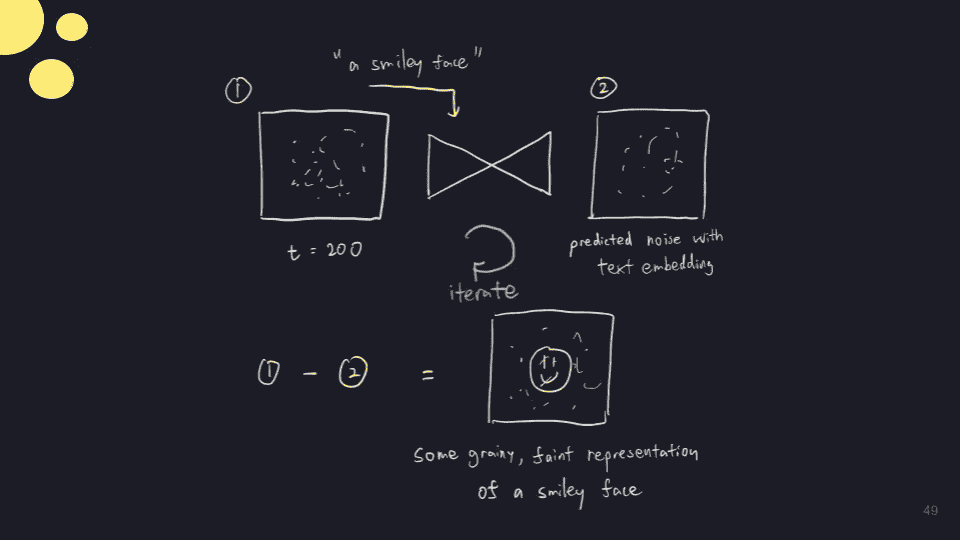 "a smiley face"
①
②
t = 200
predicted noise with
text embedding
iterate
① - ② =
some grainy, faint representation
of a smiley face
49